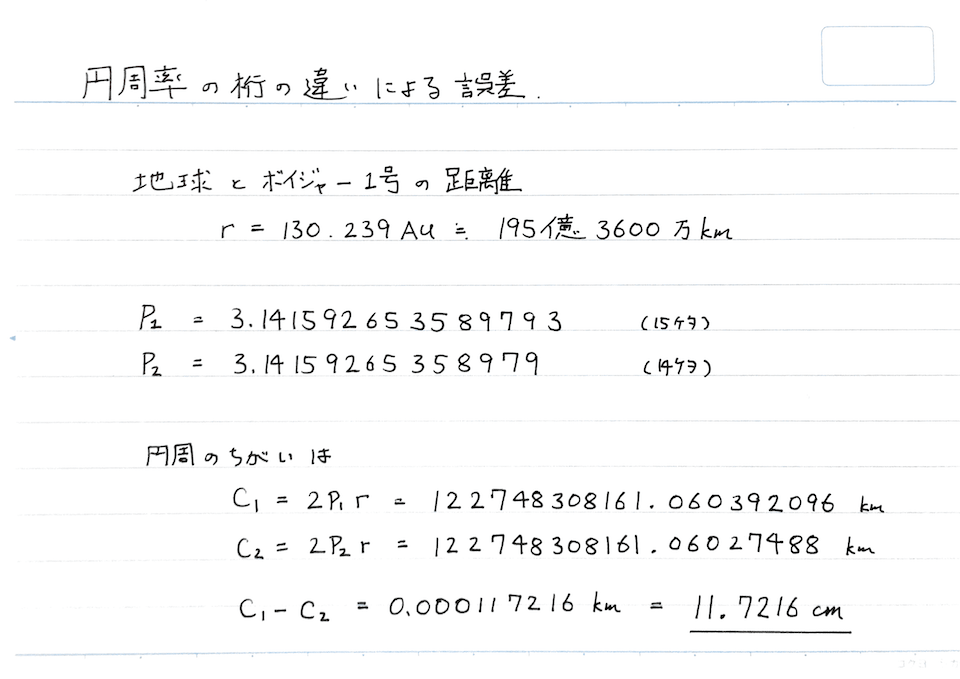 円周率の桁の違いによる誤差.
地球とボイジャー1号の距離
r = 130.239 AU ≒ 195億3600万km
P1 = 3.141592653589793 (15ケタ)
P2 = 3.14159265358979 (14ケタ)
円周のちがいは
C1 = 2P1r = 122748308161.060392096 km
C2 = 2P2r = 122748308161.06027488 km
C1 - C2 = 0.000117216 km = 11.7216 cm